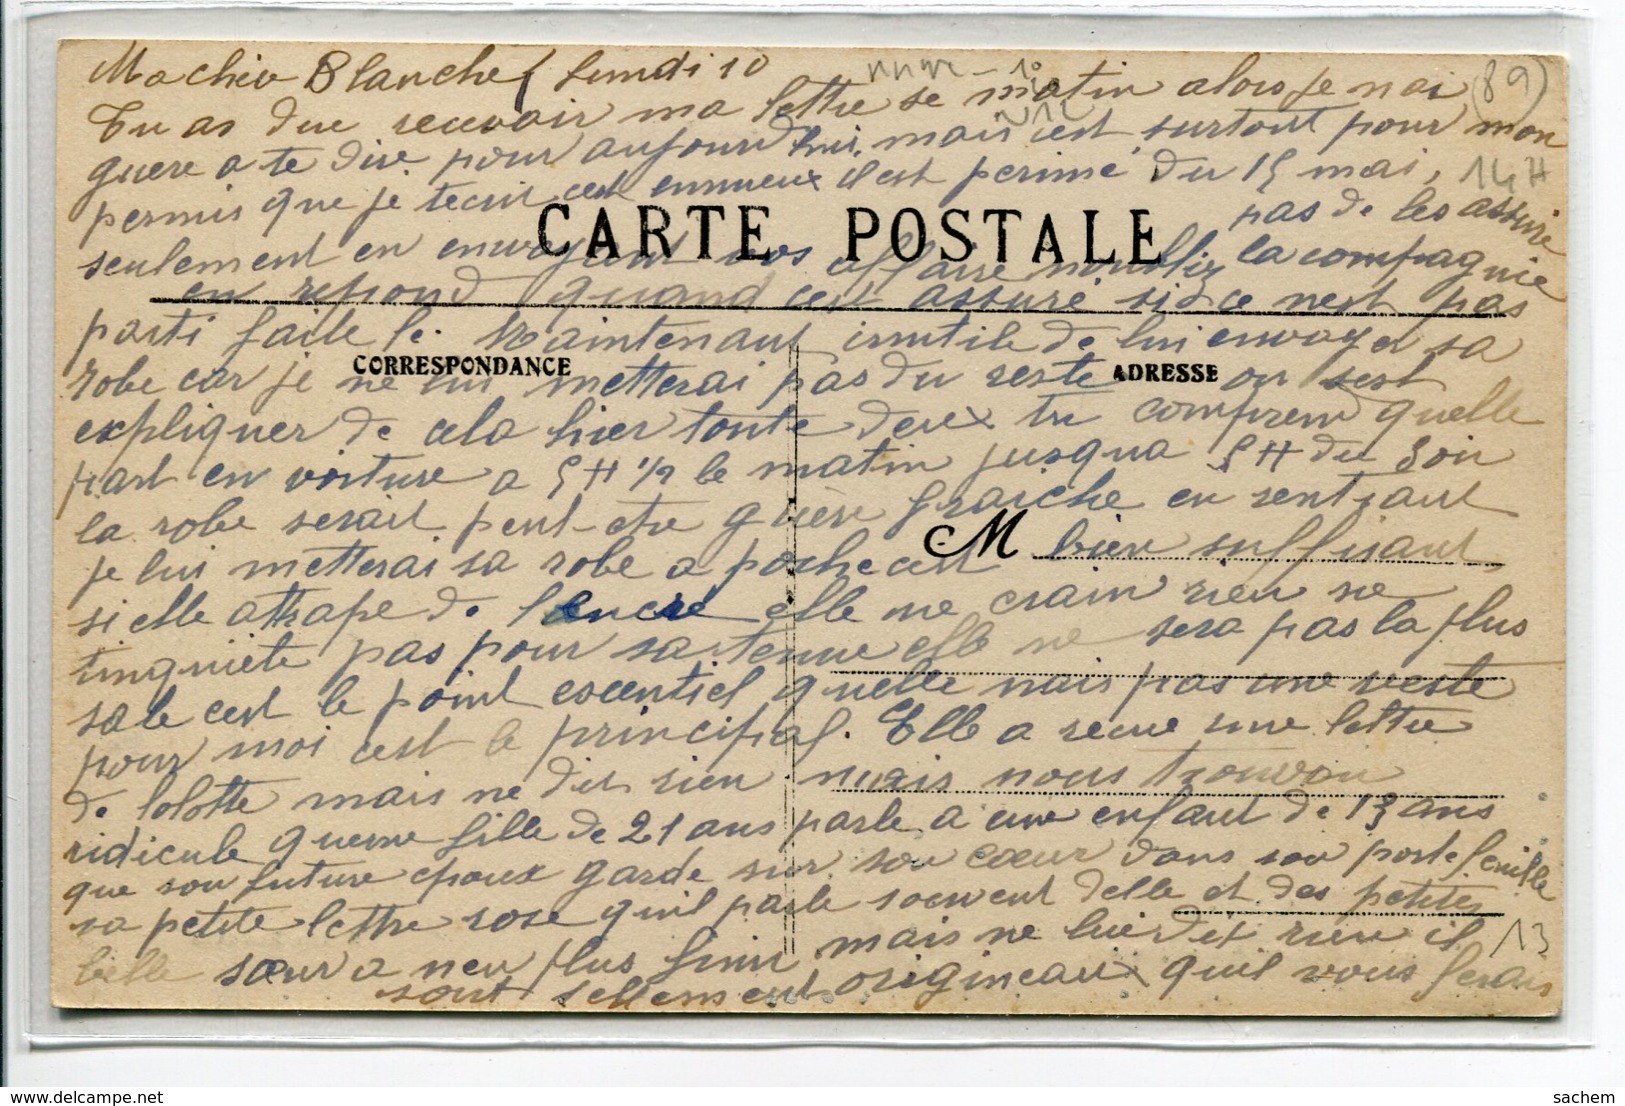 Ma chère Blanche lundi 10
Tu as due recevoir ma lettre se matin alors je nai
(89)
guere a te dire pour aujourdhui, mais cest surtout pour mon
permis que je tecrit cest ennuieux il est perimé du 15 mai,
14H
CARTE POSTALE
pas de les assurie
seulement en envoyant vos affaire noubliz la compagnie
en repond quand cest assuré si ce nest pas
parti faite le. Maintenant inutile de lui envoyer sa
CORRESPONDANCE
ADRESSE
robe car je ne lui metterai pas du reste on sest
expliquer de cela hier toute deux tu comprend quelle
part en voiture a 5H 1/2 le matin jusqua 5H du Soir
la robe serait peut-etre guère fraiche en rentrant
je lui metterai sa robe a poche cest bien suffisant
M
si elle attrape de lencre elle ne crain rien ne
tinquiète pas pour sa tenue elle ne sera pas la plus
sale cest le point escentiel quelle nais pas une veste
pour moi cest le principal. Elle a recue une lettre
de lolotte mais ne dit rien mais nous trouvon
ridicule quemme fille de 21 ans parle a une enfant de 13 ans
que son future epoux garde sur son cœur dans son porte feuille
sa petite lettre rose quil parle souvent delle et des petites
13
belle sœur a neu plus finir mais ne lui dit rien il
sont tellement origineaux quil vous ferais